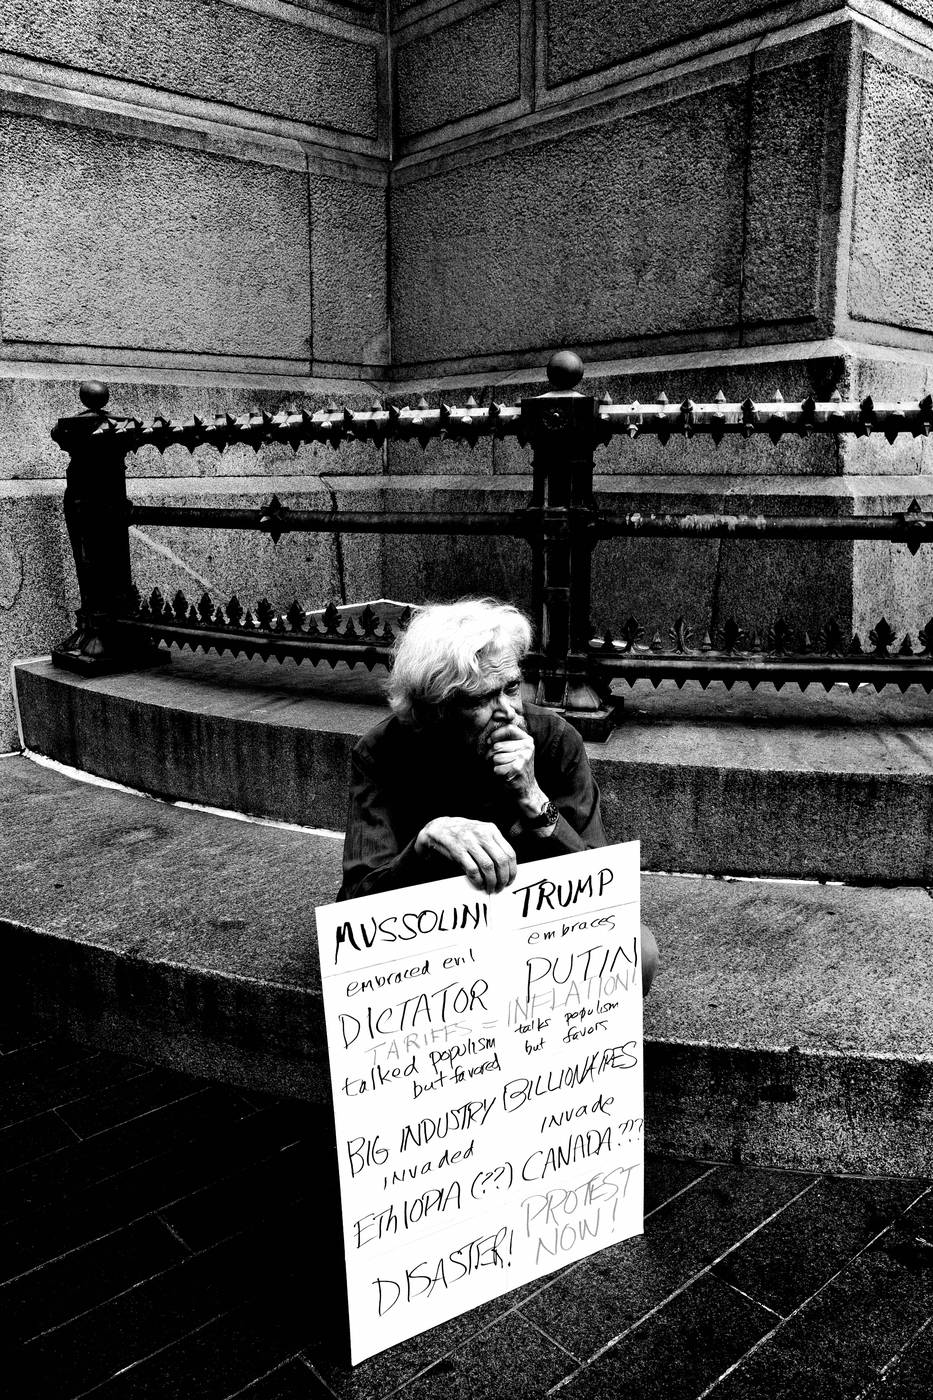 MUSSOLINI
embraced evil
DICTATOR
talked populism
but favored
BIG INDUSTRY
invaded
EthIOPIA (??)
DISASTER!
TRUMP
embraces
PUTIN
TARIFFS = INFLATION!
talks populism
but favors
BILLIONAIRES
invade
CANADA???
PROTEST
NOW!